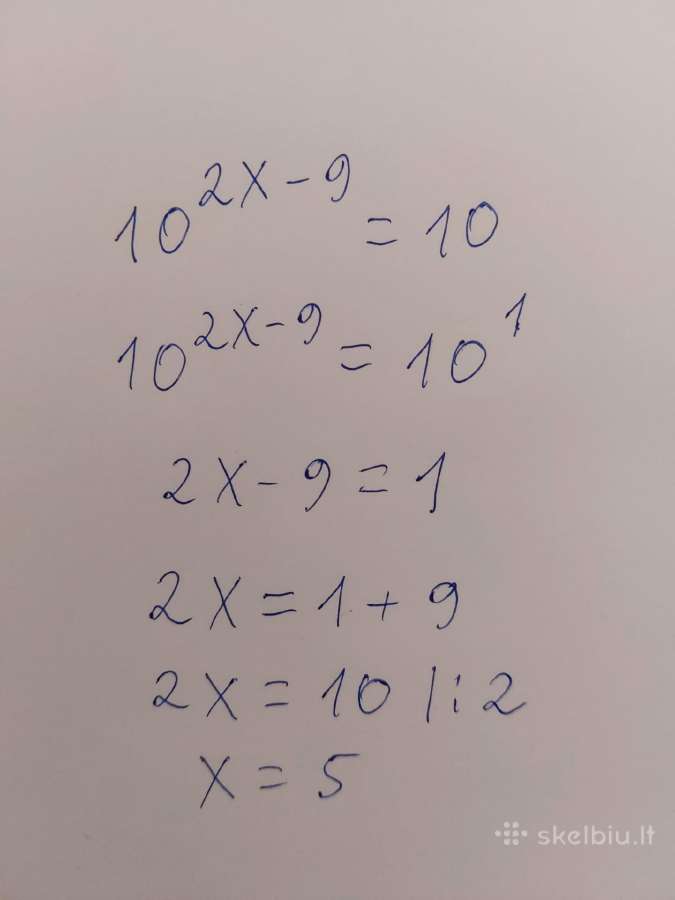 10^{2x-9} = 10
10^{2x-9} = 10^1
2x - 9 = 1
2x = 1 + 9
2x = 10 | : 2
x = 5
skelbiu.lt